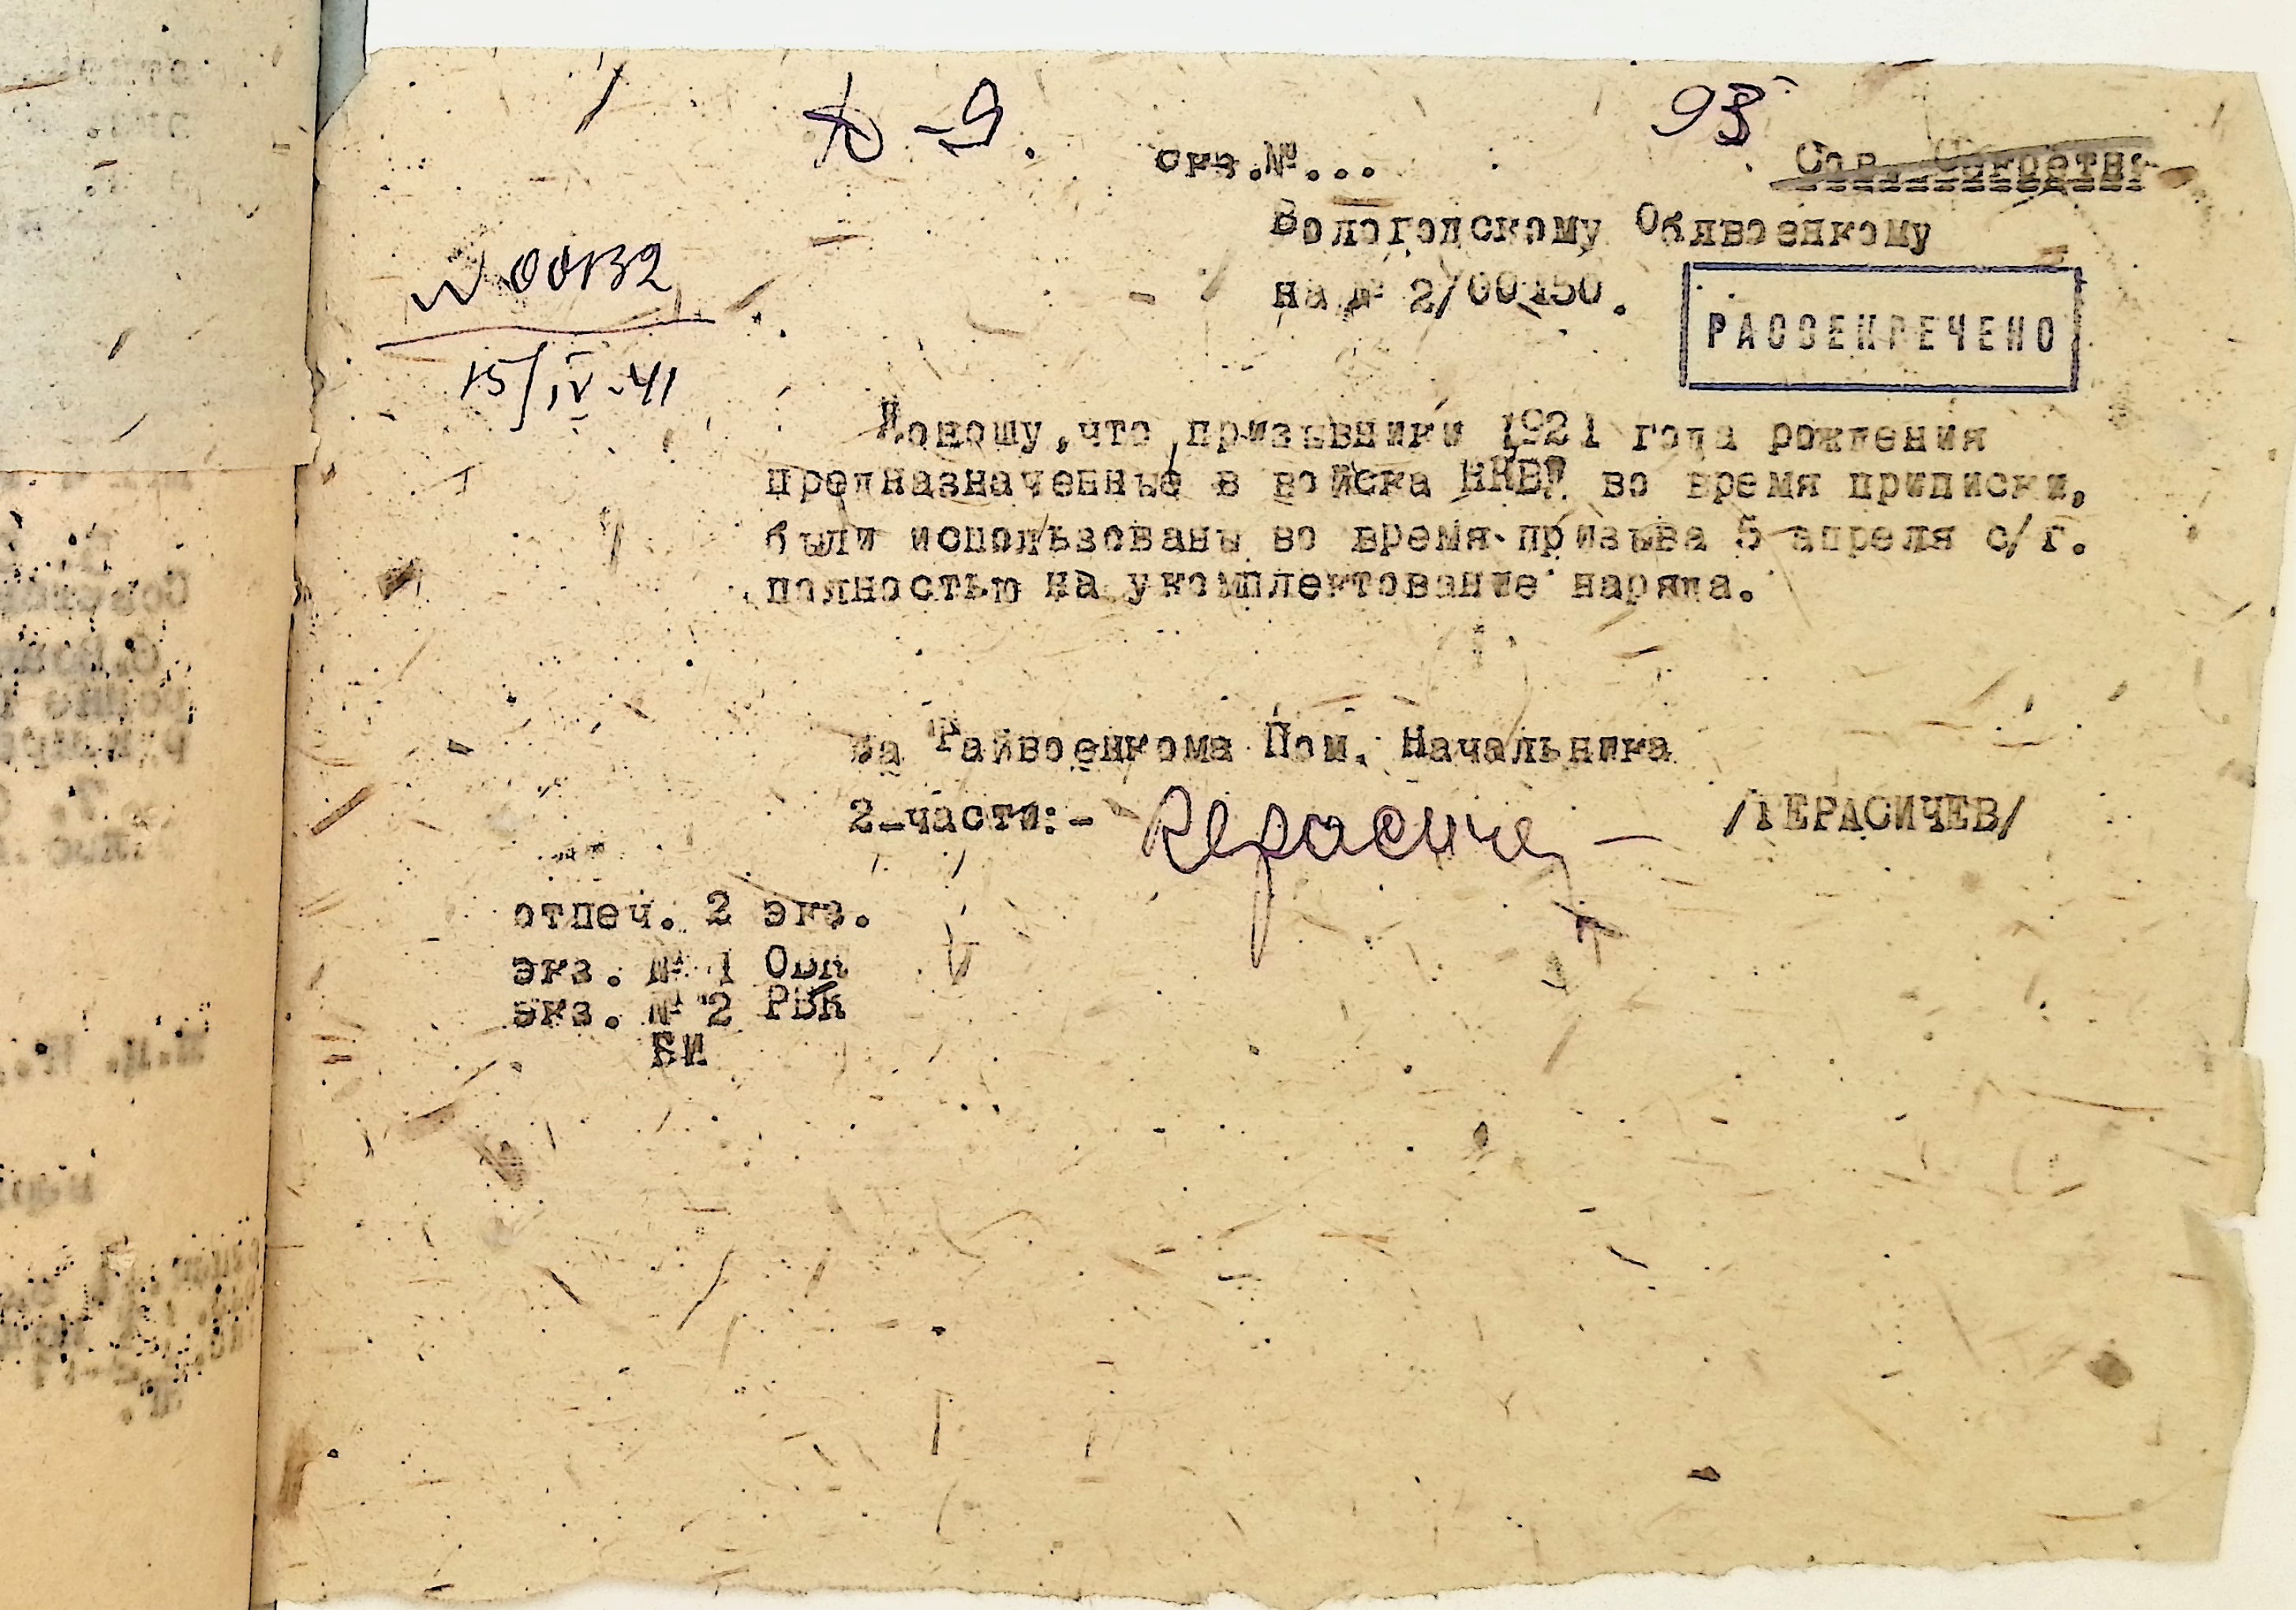 -9.
93
экз.№...
Сов. Секретно
Вологодскому Облвоенкому
на № 2/00150.
РАССЕКРЕЧЕНО
№ 00132
15/IV-41
Доношу,что призывники 1921 года рождения
предназначенные в войска НКВД во время приписки,
были использованы во время призыва 5 апреля с/г.
полностью на укомплектование наряда.
За Райвоенкома Пом. Начальника
2-части:- Герасичев /ГЕРАСИЧЕВ/
отпеч. 2 экз.
экз. № 1 ОВК
экз. № 2 РВК
БИ